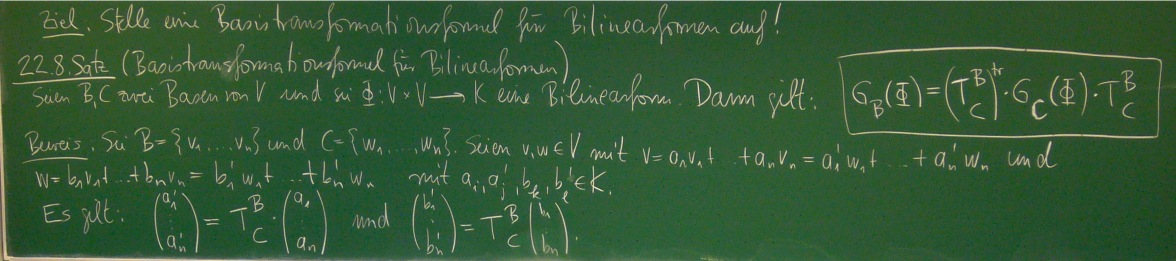 Ziel. Stelle eine Basistransformationsformel für Bilinearformen auf!
22.8. Satz (Basistransformationsformel für Bilinearformen)
Seien B, C zwei Basen von V und sei Φ: V × V → K eine Bilinearform. Dann gilt: G_B(Φ) = (T^B_C)^tr · G_C(Φ) · T^B_C
Beweis. Sei B = {v₁, ..., vₙ} und C = {w₁, ..., wₙ}. Seien v, w ∈ V mit v = a₁v₁ + ... + aₙvₙ = a₁'w₁ + ... + aₙ'wₙ und
w = b₁v₁ + ... + bₙvₙ = b₁'w₁ + ... + bₙ'wₙ mit a_i, a_j', b_k, b_ℓ' ∈ K.
Es gilt: (a₁' ⋮ aₙ') = T^B_C · (a₁ ⋮ aₙ) und (b₁' ⋮ bₙ') = T^B_C (b₁ ⋮ bₙ).